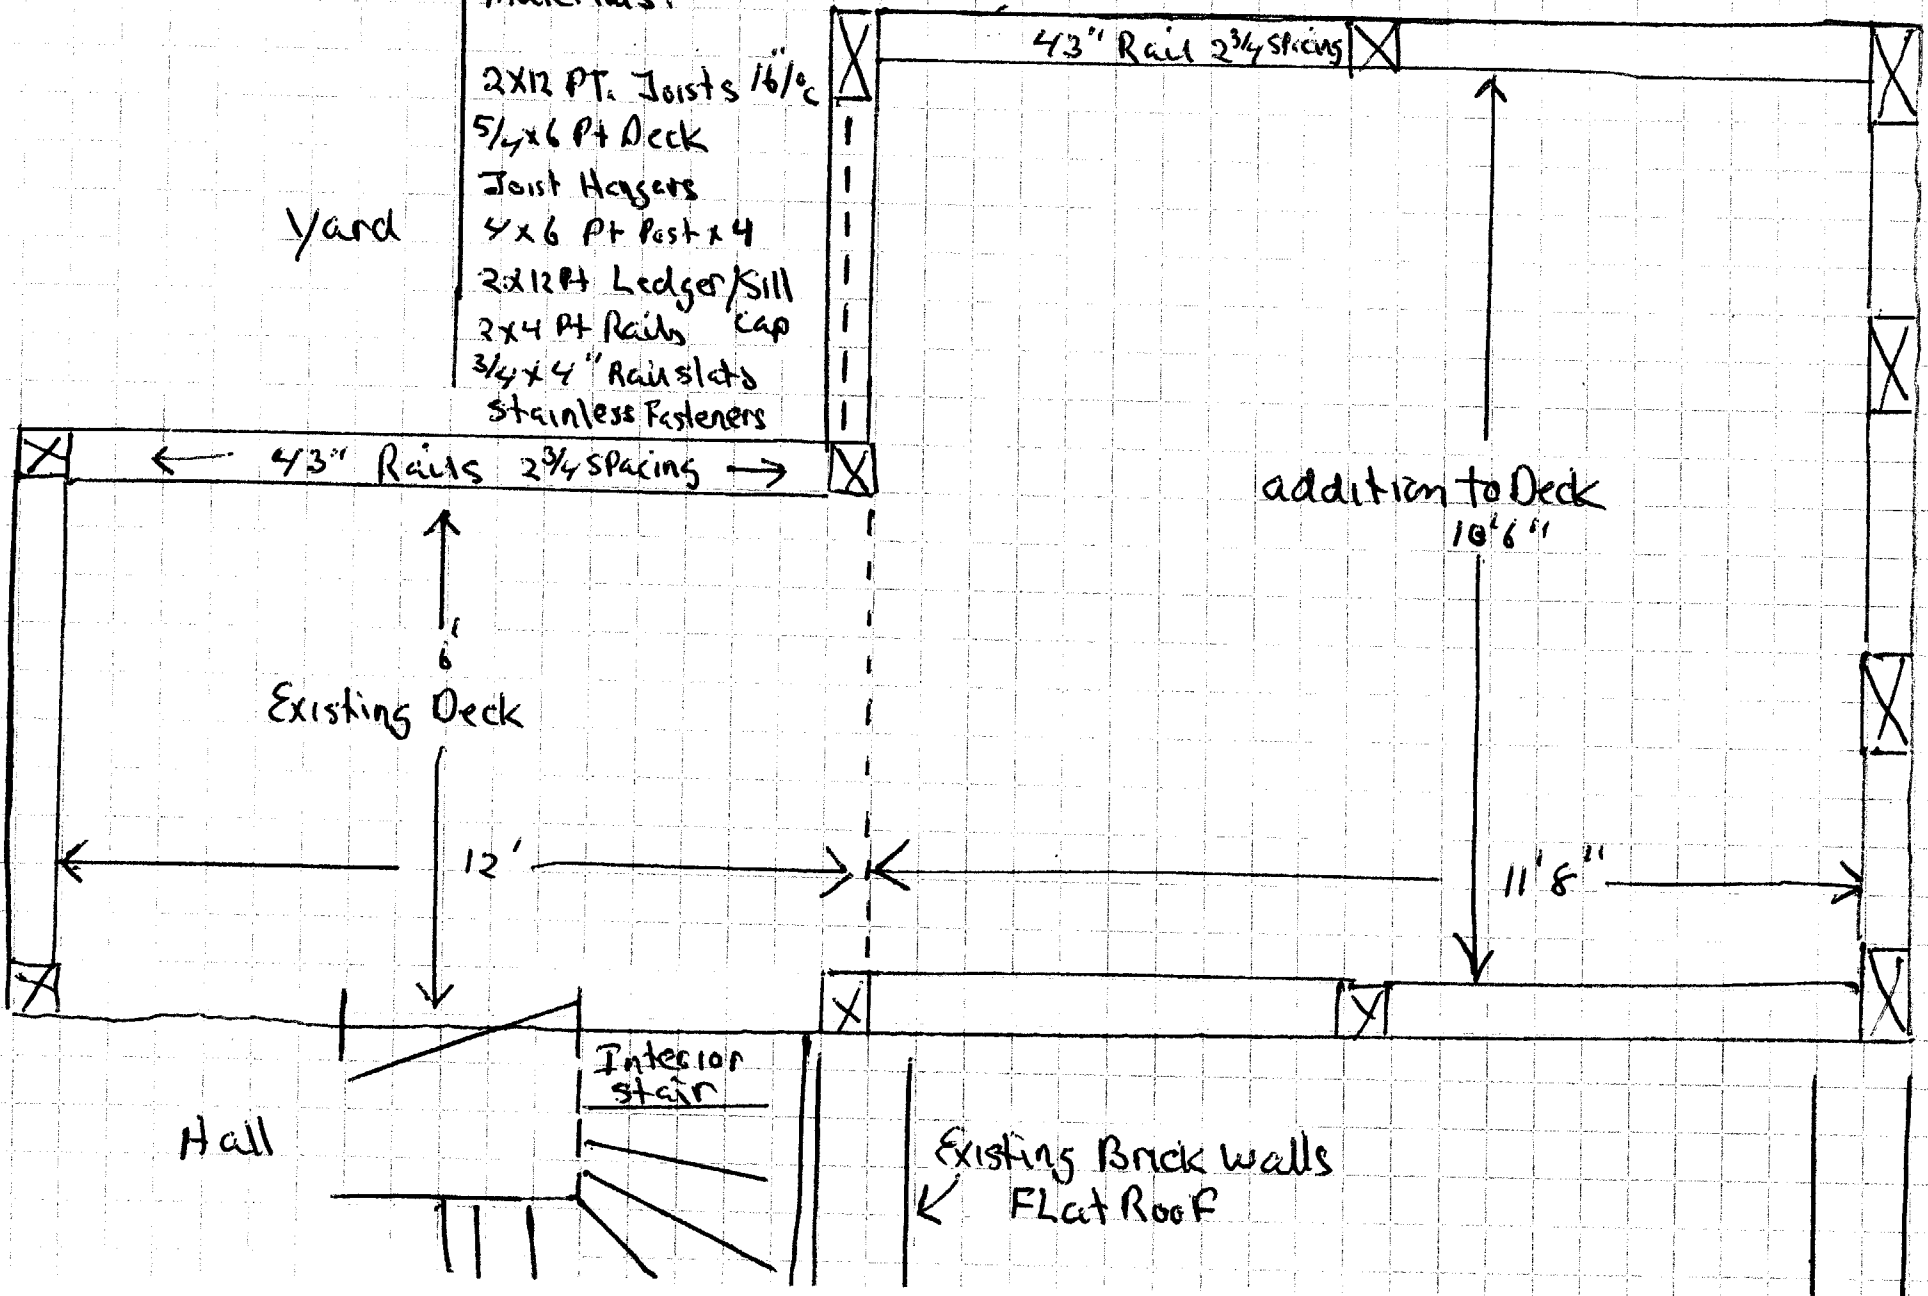 Materials:
2x12 PT. Joists 16"/oc
5/4x6 Pt Deck
Joist Hangars
4x6 Pt Post x 4
2x12 Pt Ledger/Sill
cap
2x4 Pt Rails
3/4 x 4" Rail slats
Stainless Fasteners
Yard
43" Rail 2 3/4 Spacing
43" Rails 2 3/4 Spacing
addition to Deck
10'6"
6'
Existing Deck
12'
11'8"
Interior
stair
Hall
Existing Brick Walls
FLat Roof